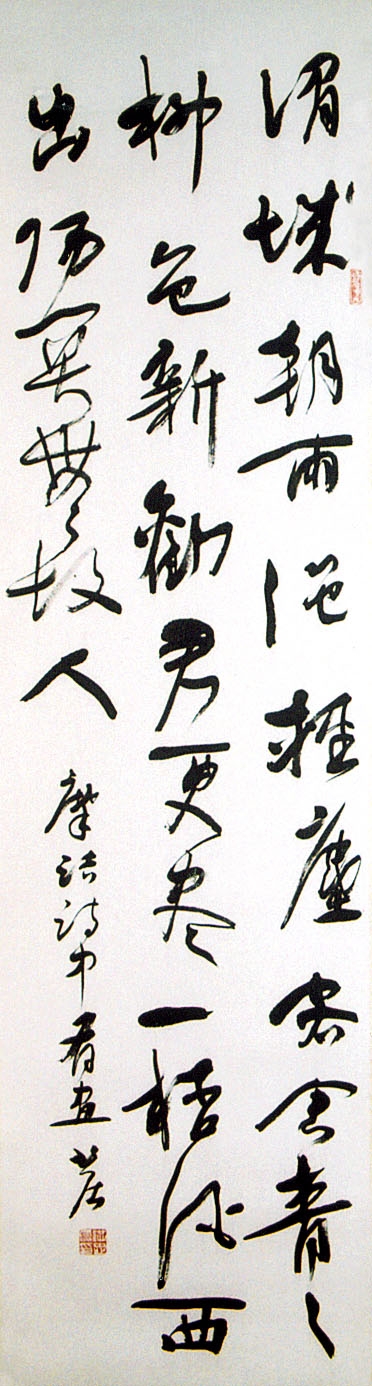 渭城朝雨浥輕塵客舍青々
柳色新勸君更盡一桮酒西
出陽關無故人
摩詰詩中有畫